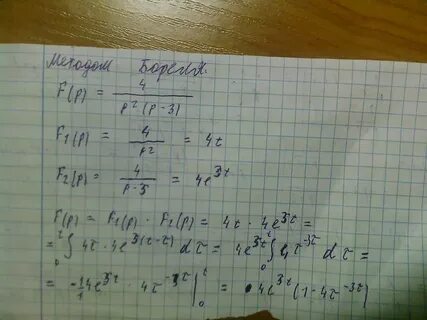 Методом Бореля.
F(p) = 4 / p²(p-3)
F₁(p) = 4 / p² = 4t
F₂(p) = 4 / p-3 = 4e^{3t}
F(p) = F₁(p) · F₂(p) = 4t · 4e^{3t} =
= ₀∫ᵗ 4τ · 4e^{3(t-τ)} dτ = 4e^{3t} ₀∫ᵗ 4τ^{-3τ} dτ =
= -1/1 4e^{3t} · 4τ^{-3τ} |₀ᵗ = 4e^{3t} (1-4τ^{-3t})